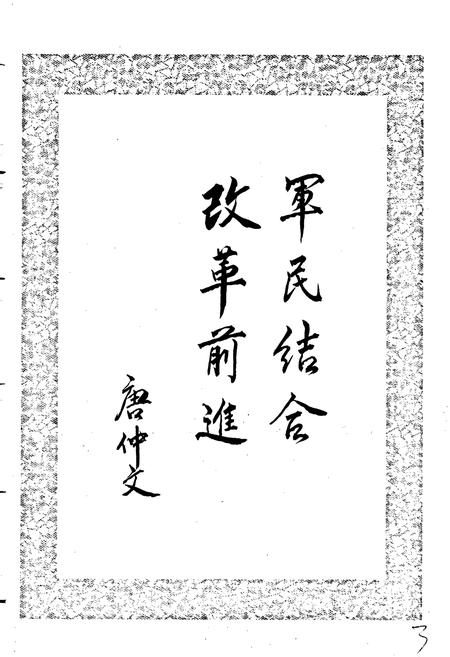 軍民结合
改革前進
唐仲文
3